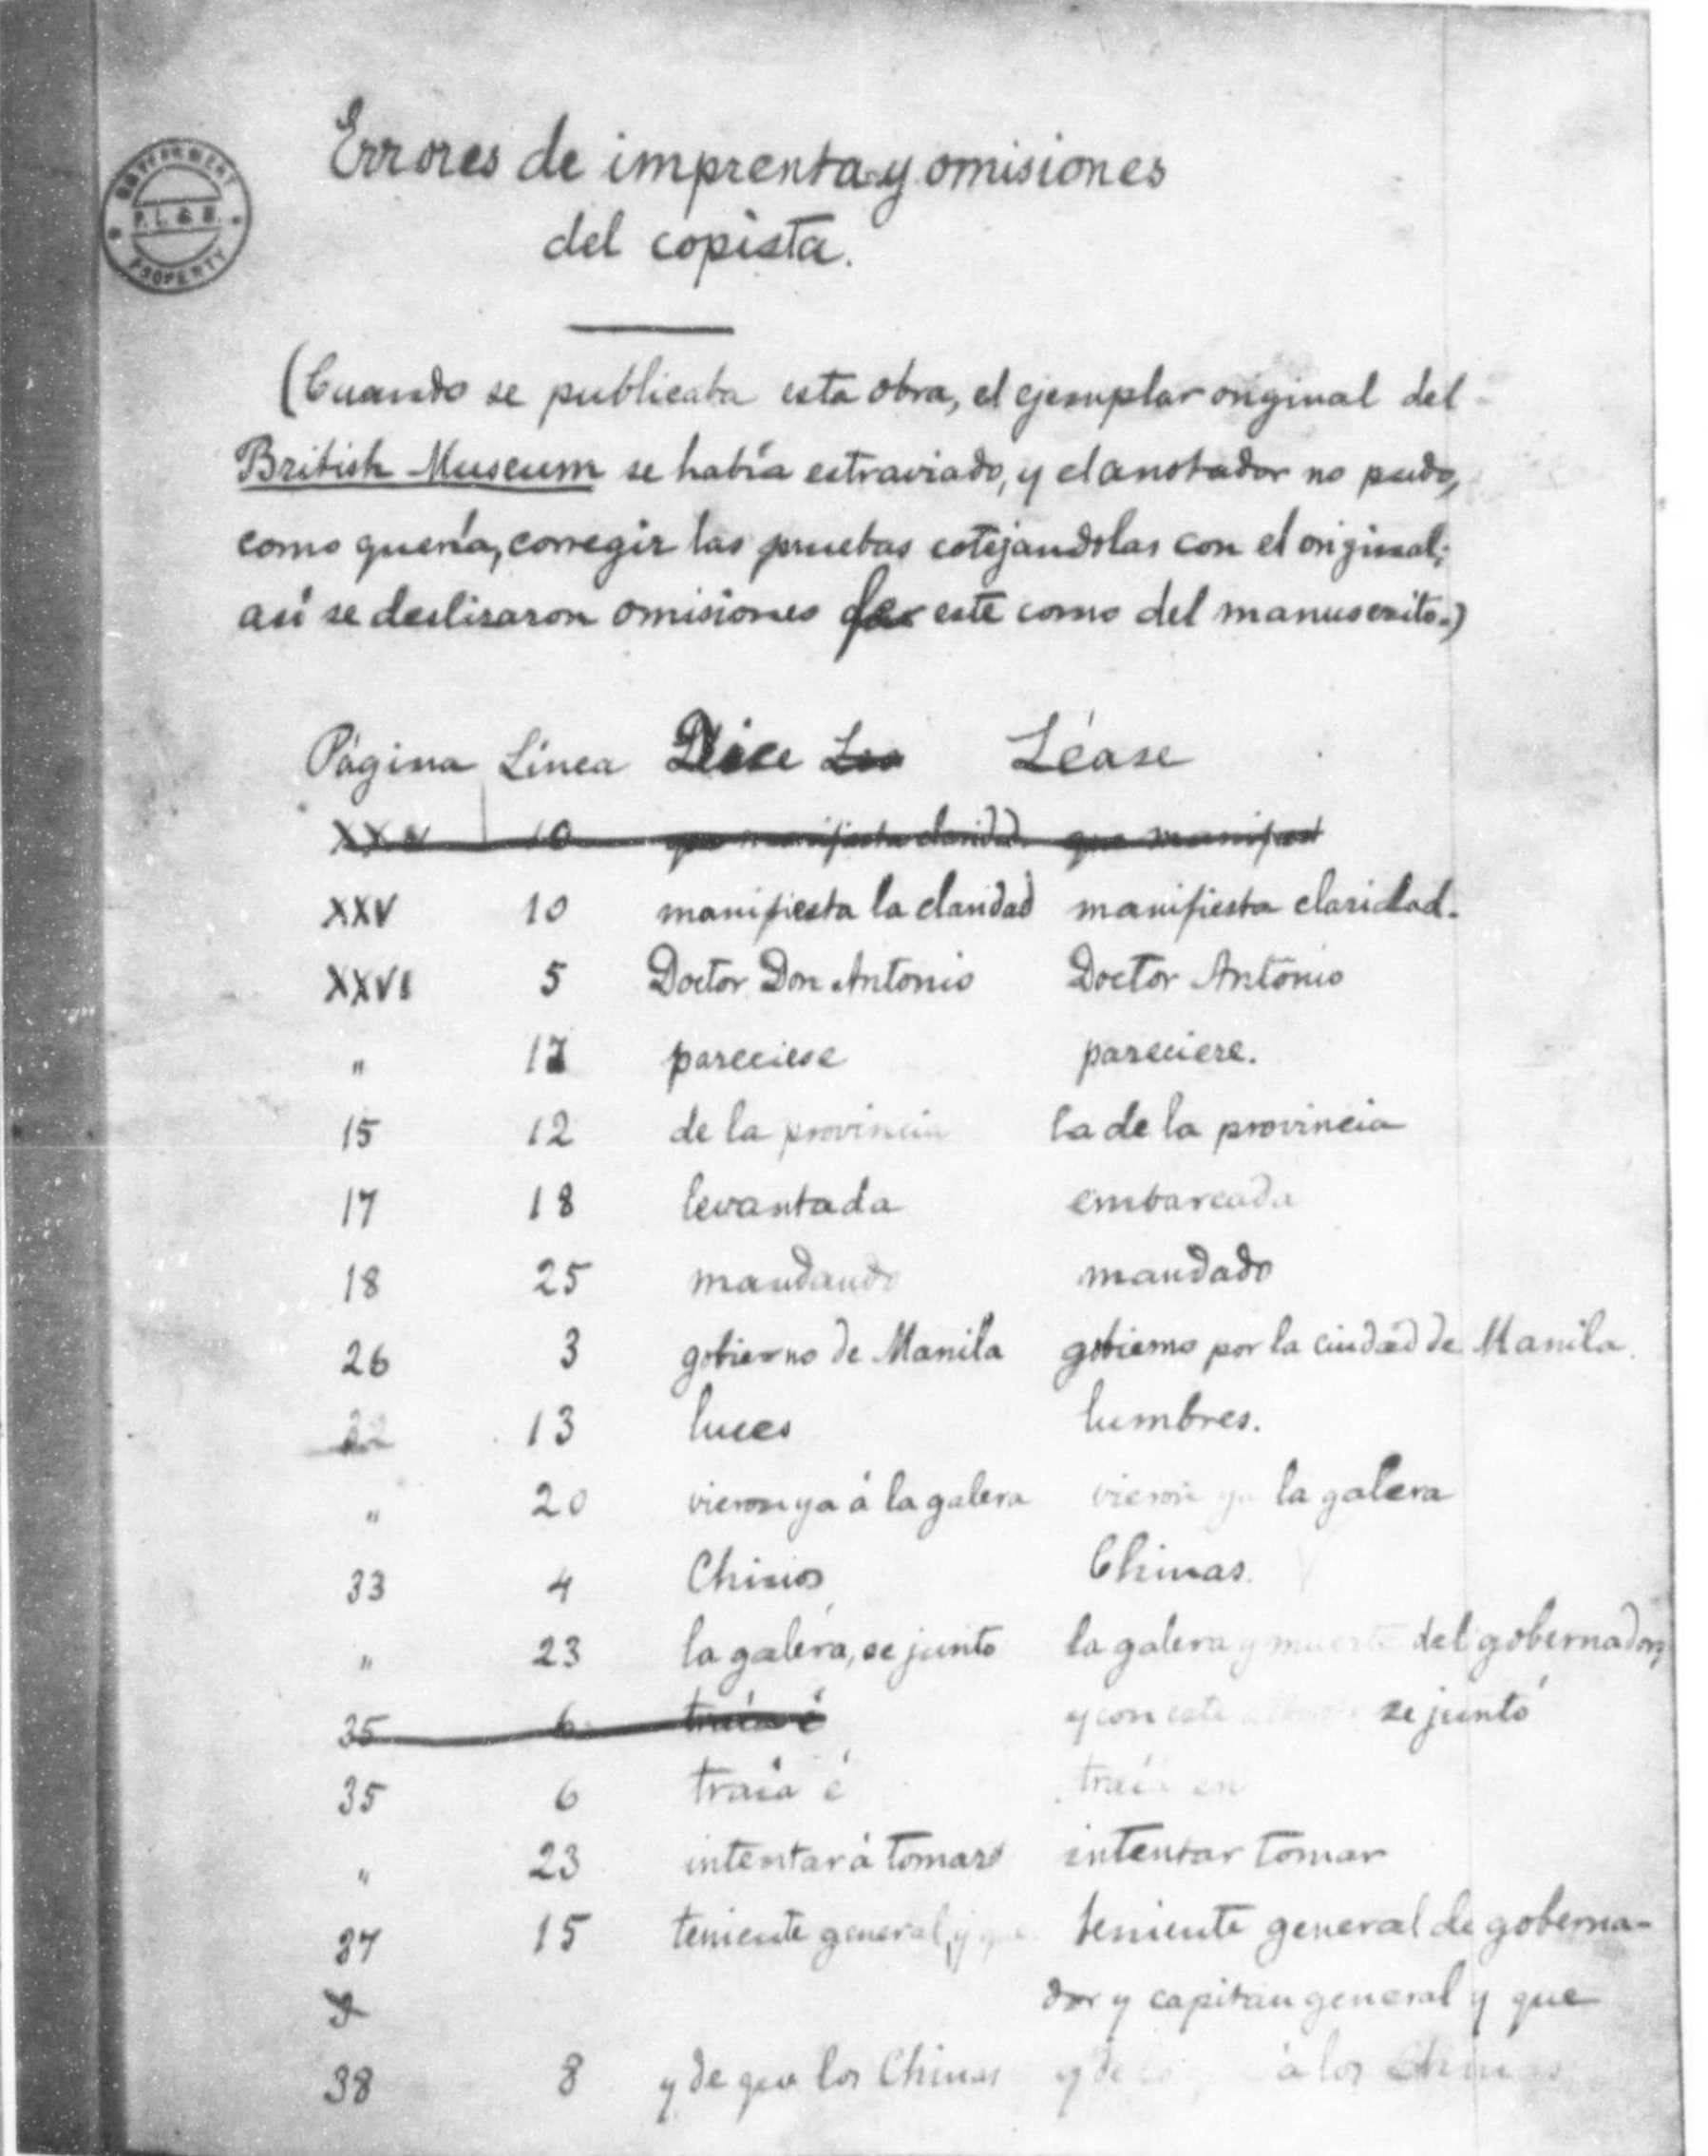 GOVERNMENT
P. L. & M.
PROPERTY
Errores de imprenta y omisiones
del copista.
(Cuando se publicaba esta obra, el ejemplar original del
British Museum se había estraviado, y el anotador no pudo,
como quería, corregir las pruebas cotejandolas con el original;
así se deslizaron omisiones este como del manuscrito.)
Página Línea Dice Léase
XXV 10 manifiesta la claridad manifiesta claridad.
XXVI 5 Doctor Don Antonio Doctor Antonio
" pareciese pareciere.
15 12 de la provincia la de la provincia
17 18 levantada embarcada
18 25 mandando mandado
26 3 gobierno de Manila gobierno por la ciudad de Manila.
13 luces lumbres.
" 20 vieron ya á la galera vieron ya la galera
33 4 Chinos Chinas.
" 23 la galera, se juntó la galera y muerte del gobernador,
35 6 traía é y con este se juntó
35 6 traía é traía en
" 23 intentar á tomar intentar tomar
37 15 teniente general, y que teniente general de goberna-
dor y capitan general y que
38 8 y de que los Chinas y de á los Chinas